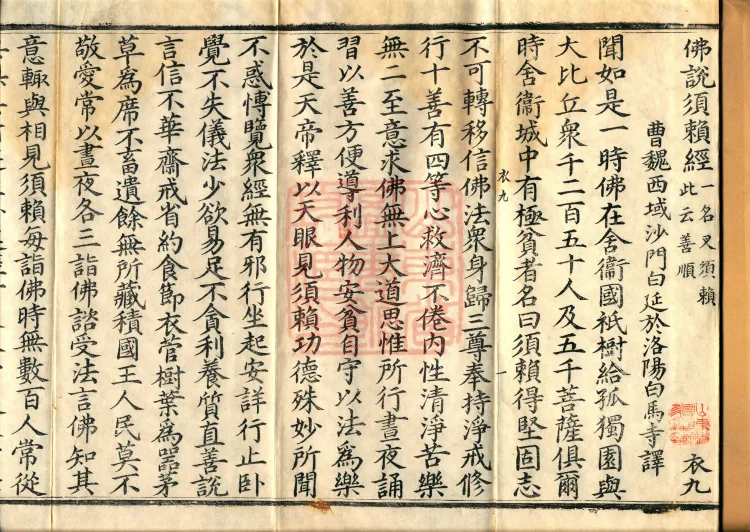 佛說須賴經 一名叉須賴
此云善順
衣九
曹魏西域沙門白延於洛陽白馬寺譯
聞如是一時佛在舍衞國祇樹給孤獨園與
大比丘衆千二百五十人及五千菩薩俱爾
時舍衞城中有極貧者名曰須賴得堅固志
衣九
一
不可轉移信佛法衆身歸三尊奉持淨戒修
行十善有四等心救濟不倦内性清淨苦樂
無二至意求佛無上大道思惟所行晝夜誦
習以善方便導利人物安貧自守以法爲樂
於是天帝釋以天眼見須賴功德殊妙所聞
不惑博覽衆經無有邪行坐起安詳行止卧
覺不失儀法少欲易足不貪利養質直善說
言信不華齋戒省約食節衣菅樹葉爲器茅
草爲席不畜遺餘無所藏積國王人民莫不
敬愛常以晝夜各三詣佛諮受法言佛知其
意輙與相見須賴每詣佛時無數百人常從